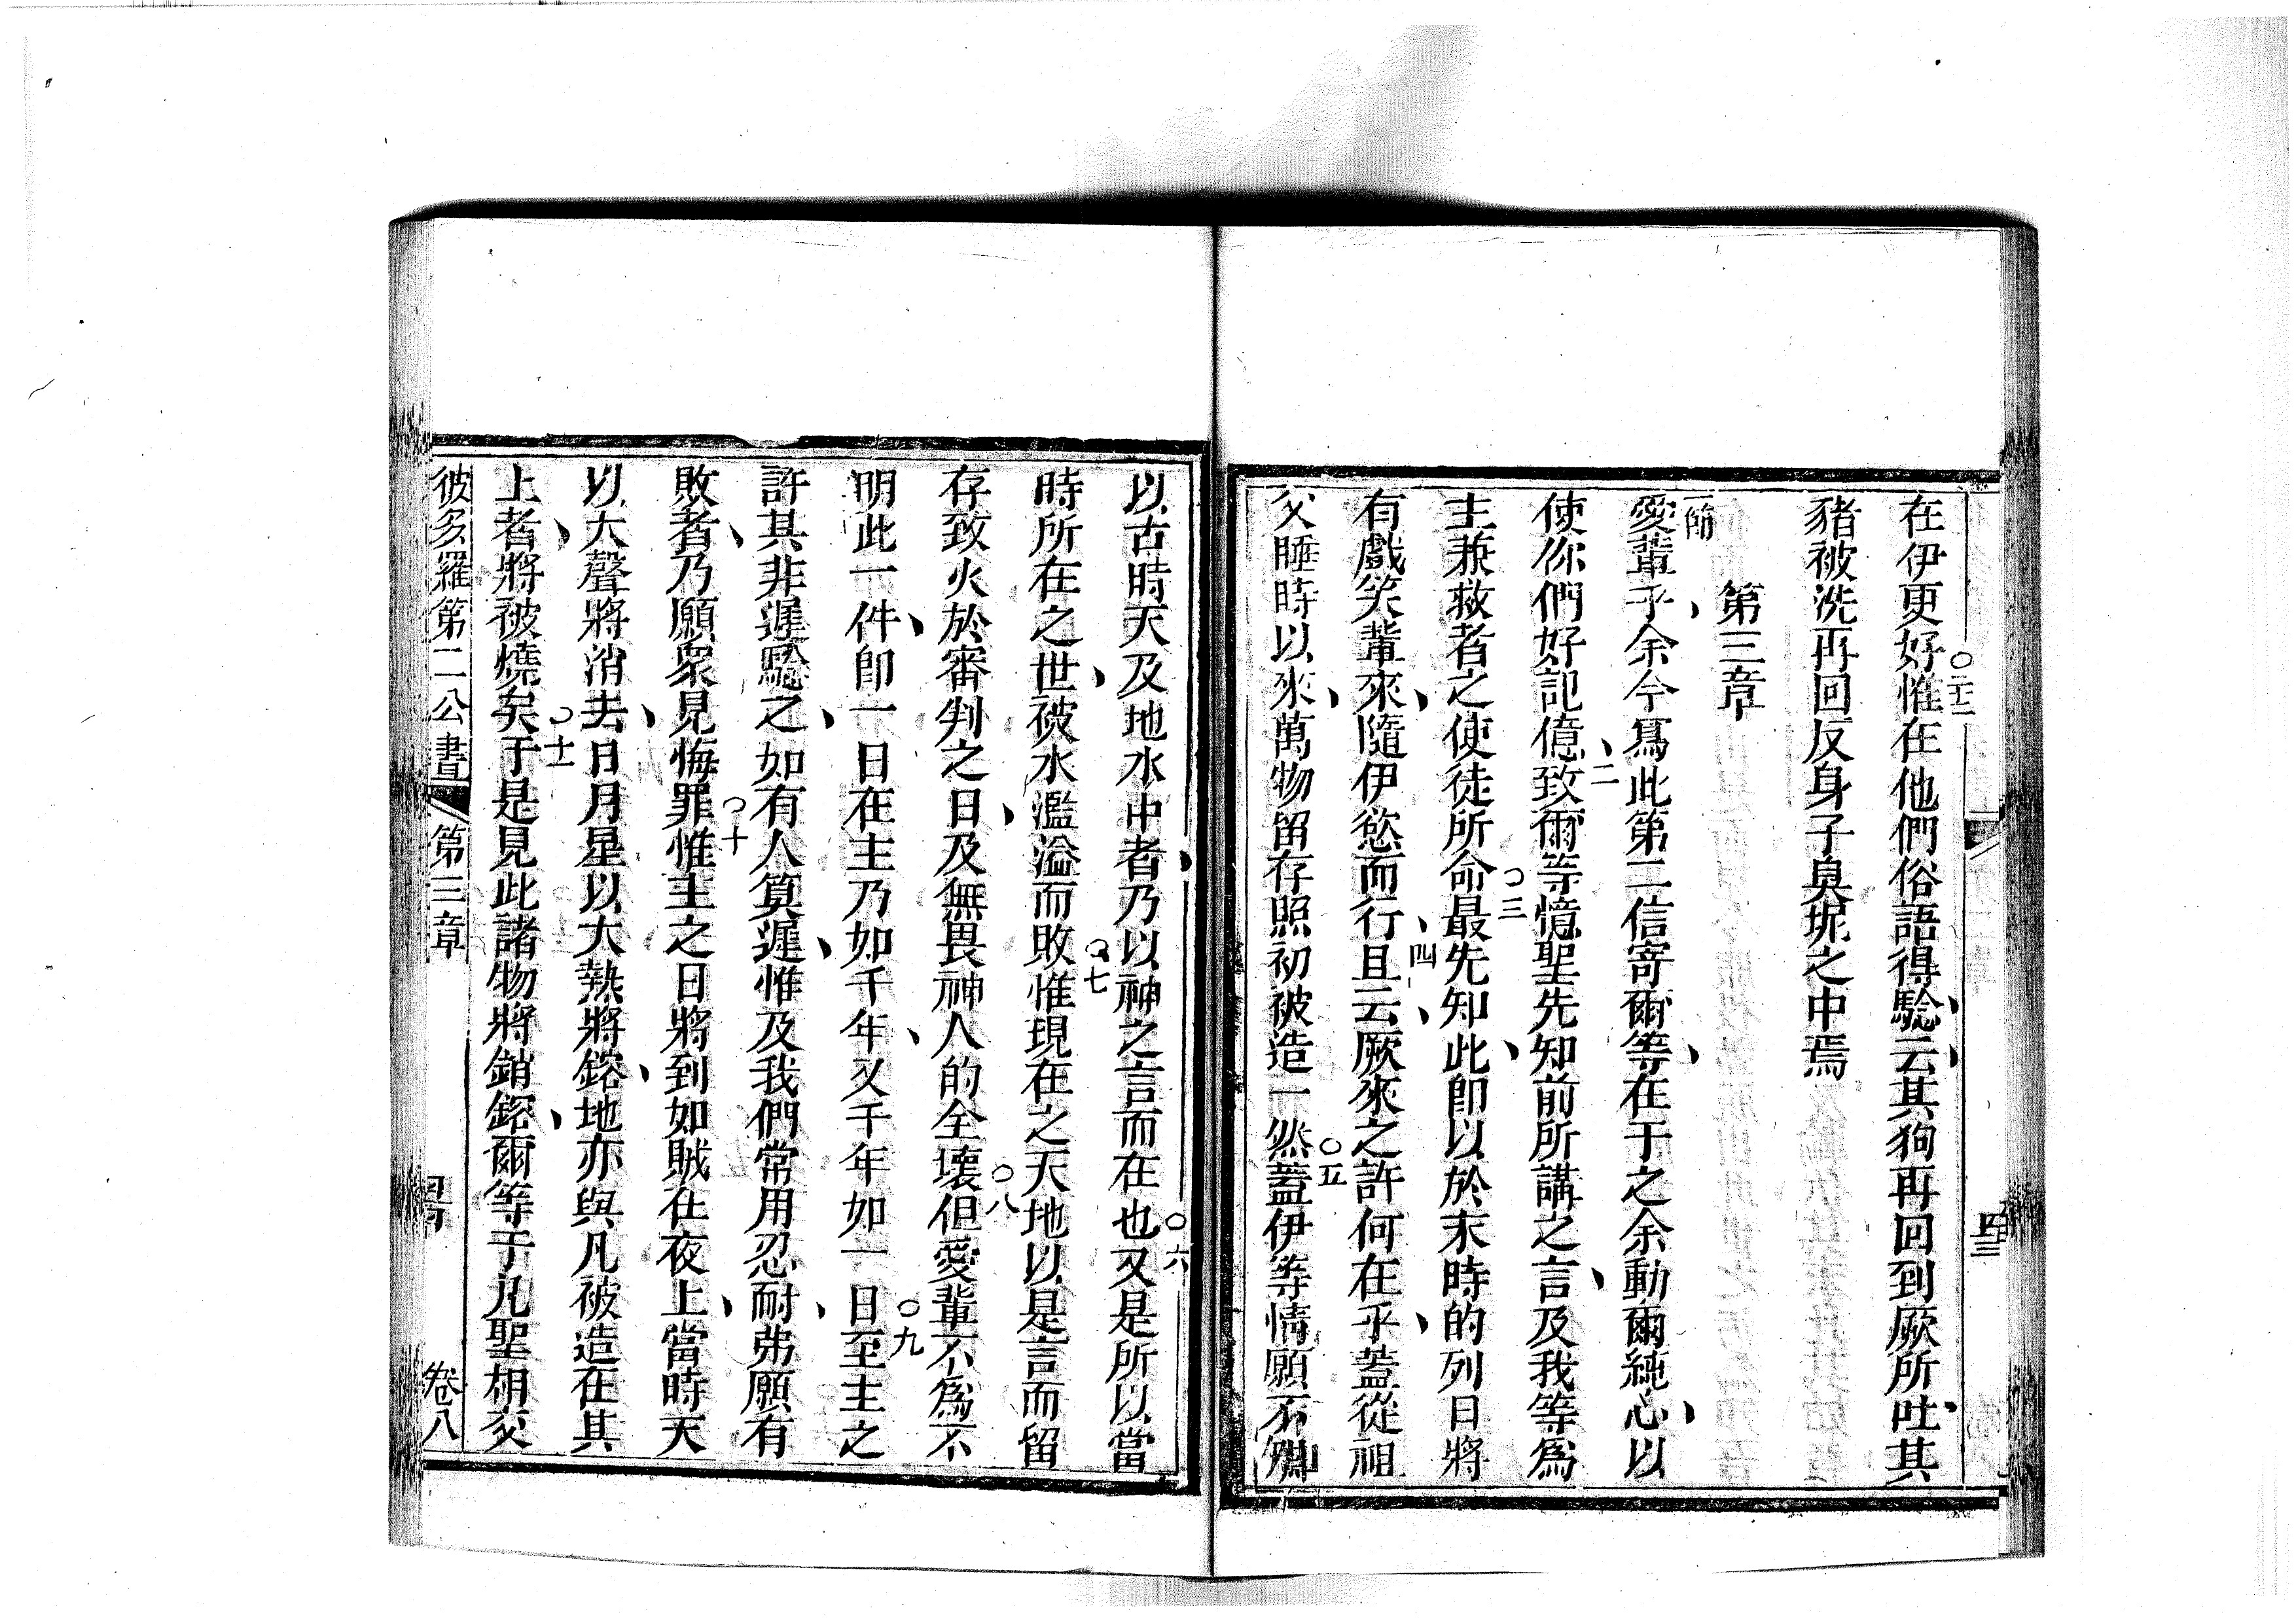 在伊更好惟在他們俗語得驗云其狗再回到厥所吐其
○二十二
豬被洗再回反身子臭坭之中焉
第三章
一節
愛輩乎余今寫此第二信寄爾等在于之余動爾純心以
使你們好記億致爾等憶聖先知前所講之言及我等為
二
主兼救者之使徒所命最先知此即以於末時的列日將
○三
有戲笑輩來隨伊慾而行且云厥來之許何在乎蓋從祖
四
父睡時以來萬物留存照初被造一然蓋伊等情願不知
○五
四三
以古時天及地水中者乃以神之言而在也又是所以當
○六
時所在之世被水濫溢而敗惟現在之天地以是言而留
○七
存致火於審判之日及無畏神人的全壞但愛輩不為不
○八
明此一件即一日在主乃如千年又千年如一日至主之
○九
許其非遲騐之如有人算遲惟及我們常用忍耐弗願有
敗者乃願衆見悔罪惟主之日將到如賊在夜上當時天
○十
以大聲將消去日月星以大熱將鎔地亦與凡被造在其
上者將被燒矣于是見此諸物將銷鎔爾等于凡聖相交
○十一
彼多羅第二公書 第三章 卷八